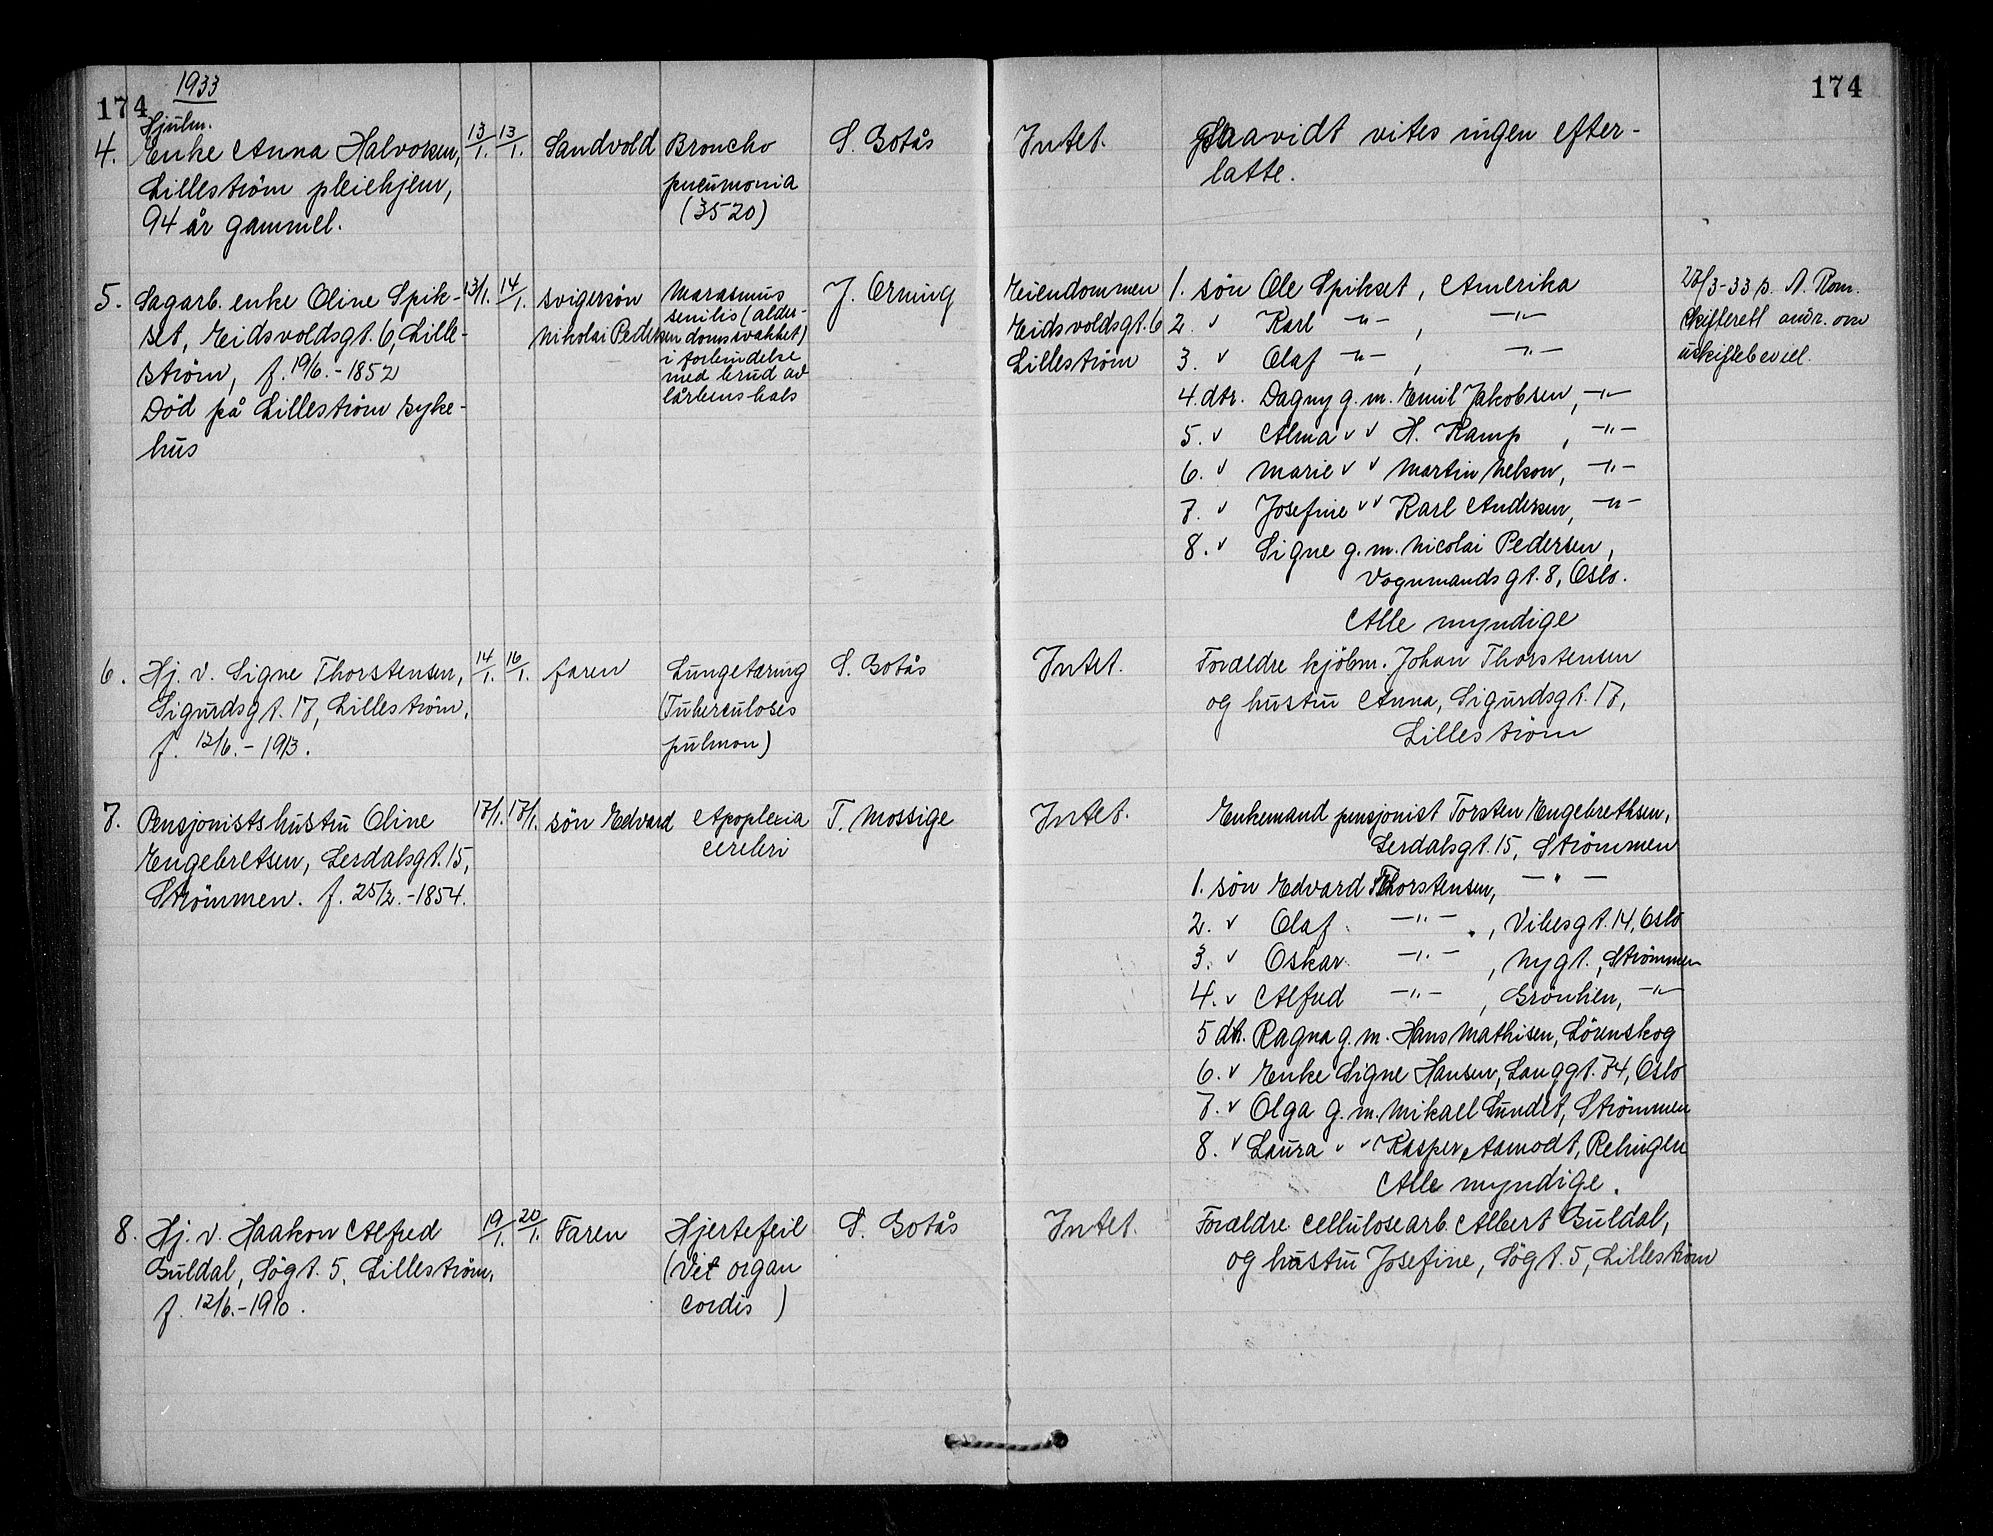 1933
174
174
Hjulm.
4. Enke Anna Halvorsen, 13/1. 13/1. Sandvold Broncho S. Botås Intet. Saavidt vites ingen efter-
Lillestrøm pleiehjem, pneumonia latte.
94 år gammel. (3520)
5. Sagarb. enke Oline Spik- 13/1. 14/1. svigersön Marasmus J. Orning Eiendommen 1. sön Ole Spikset, Amerika 27/3-33 b. N. Rom.
set, Eidsvoldsgt. 6, Lille- Nikolai Pedersen senilis (alder- Eidsvoldsgt. 6 2. v Karl -"-, -"- skifterett om
ström, f. 19/6.-1852 domssvakhet) Lilleström 3. v Olaf -"-, -"- uskiftebevill.
Död på Lilleström syke- i forbindelse 4. dtr. Dagny g.m. Emil Jakobsen, -"-
hus med brud av 5. v Alma v v H. Kamp, -"-
lårbenshals 6. v Marie v v Martin Nelson, -"-
7. v Josefine v v Karl Andersen, -"-
8. v Signe g.m. Nicolai Pedersen,
Vognmandsgt. 8, Oslo.
Alle myndige
6. Hj. v. Signe Thorstensen, 14/1. 16/1. faren Lungetæring S. Botås Intet. Forældre kjöbm. Johan Thorstensen
Sigurdsgt. 17, Lilleström. (Tuberculoses og hustru Anna, Sigurdsgt. 17,
f. 12/6.-1913. pulmon) Lilleström
7. Pensjonistshustru Oline 17/1. 17/1. sön Edvard Apoplexia T. Mossige Intet. Enkemand pensjonist Torsten Engebrethsen,
Engebretsen, Lerdalsgt. 15, cerebri Lerdalsgt. 15, Strömmen
Strömmen. f. 25/2.-1854. 1. sön Edvard Thorstensen, -"-
2. v Olaf -"-, Vibesgt. 14, Oslo
3. v Oskar -"-, Nygt., Strömmen
4. v Alfred -"-, Grönlien, -"-
5 dtr. Ragna g.m. Hans Mathisen, Lörenskog
6. v Enke Signe Hansen, Langgt. 74, Oslo
7. v Olga g.m. Mikael Sundet, Strömmen
8. v Laura v v Kasper Aamodt, Relingen
Alle myndige.
8. Hj. v. Haakon Alfred 19/1. 20/1. Faren Hjertefeil S. Botås Intet. Forældre cellulosearb. Albert Guldal,
Guldal, Sögt. 5, Lilleström, (Vit organ og hustru Josefine, Sögt. 5, Lilleström
f. 12/6.-1910. cordis)